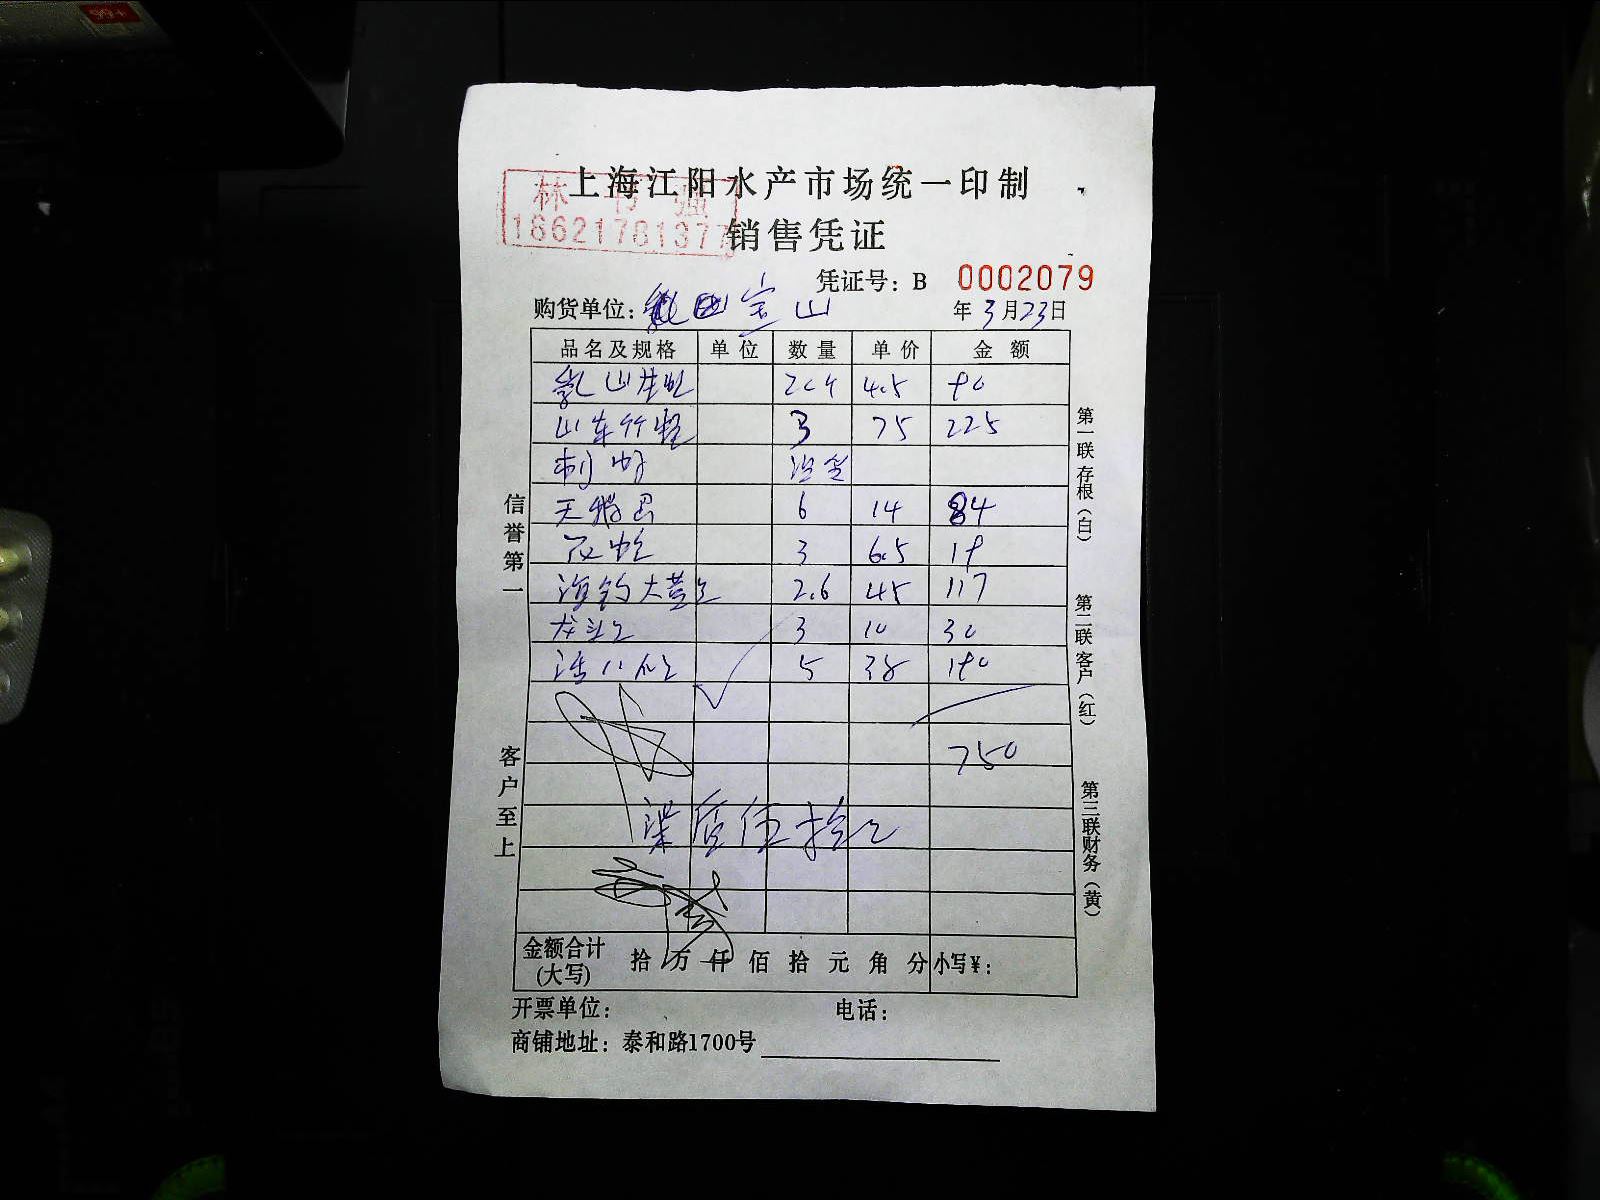 上海江阳水产市场统一印制
林 强
18621781377
销售凭证
凭证号：B 0002079
购货单位： 宝山
年 3 月 23 日
品名及规格 单位 数量 单价 金额
乳山生蚝 20个 4.5 90
山东竹蛏 3 75 225
刺 没货
天鹅 6 14 84
花蛤 3 6.5 19
海钓大黄 2.6 45 117
龙头 3 10 30
活八 5 38 190
750
柒佰伍拾元
金额合计
(大写)
拾 万 仟 佰 拾 元 角 分 小写￥：
开票单位： 电话：
商铺地址：泰和路1700号
信誉第一
客户至上
第一联存根（白）
第二联客户（红）
第三联财务（黄）